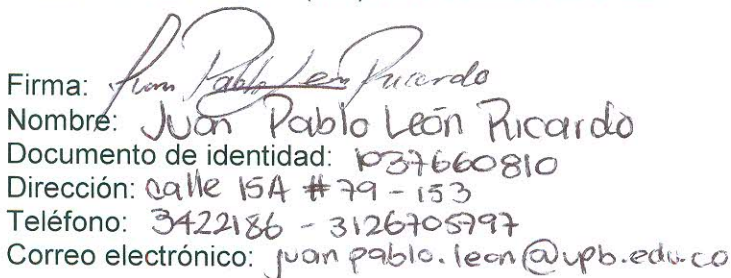 Firma: Juan Pablo León Ricardo
Nombre: Juan Pablo León Ricardo
Documento de identidad: 1037660810
Dirección: calle 15A # 79 - 153
Teléfono: 3422186 - 3126705797
Correo electrónico: juan pablo.leon@upb.edu.co